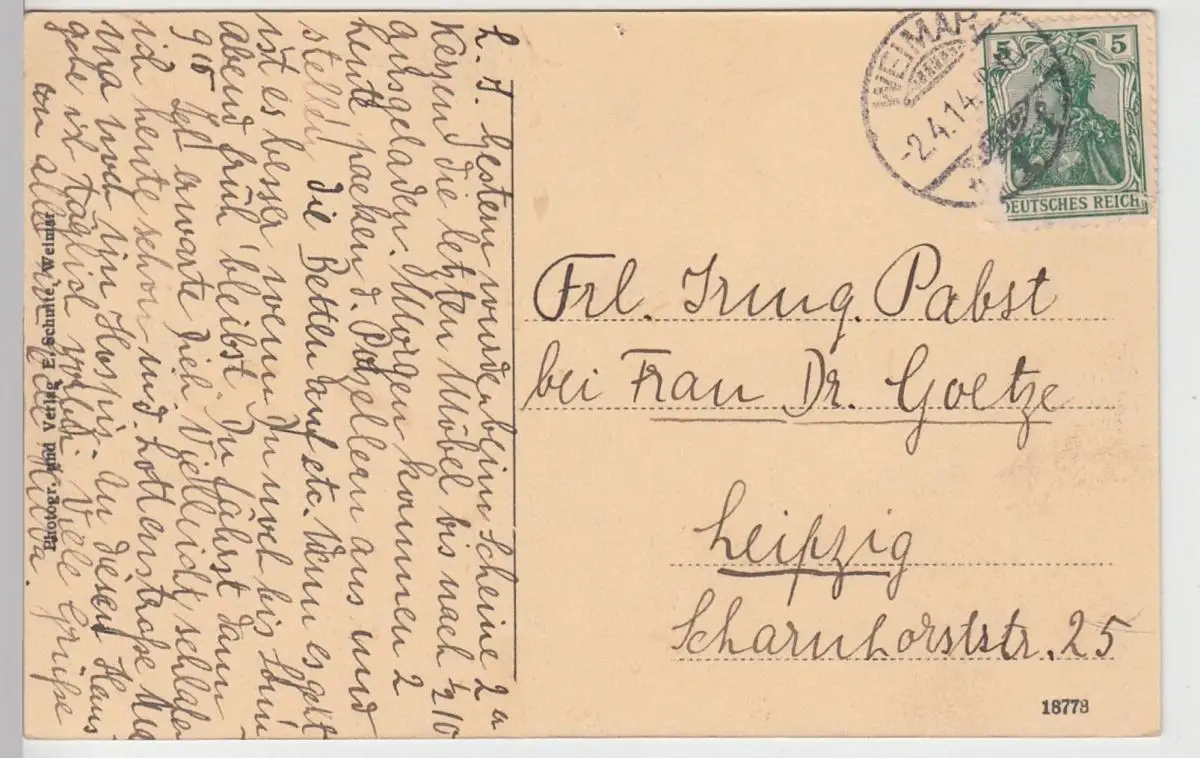 L. I. Gestern wurden beim Scheine 2er
Kerzen die letzten Möbel bis nach ½10
ausgeladen. Morgen kommen 2
Leute packen d. Porzellan aus und
stellen die Betten auf etc. Wenn es geht
ist es besser, wenn Du noch bis Sonn
abend früh bleibst. Du fährst dann
9¹⁰ Ich erwarte Dich. Vielleicht schlafen
ich heute schon und. Lottenstraße
Ma noch im Hospiz. An diesem Haus
gehe ich täglich vorbei. Viele Grüße
von allen
Photogr. und Verlag E. Schulte, Weimar
WEIMAR
-2.4.14.
5 5
DEUTSCHES REICH
Frl. Irmg. Pabst
bei Frau Dr. Goetze
Leipzig
Scharnhorststr. 25
18778